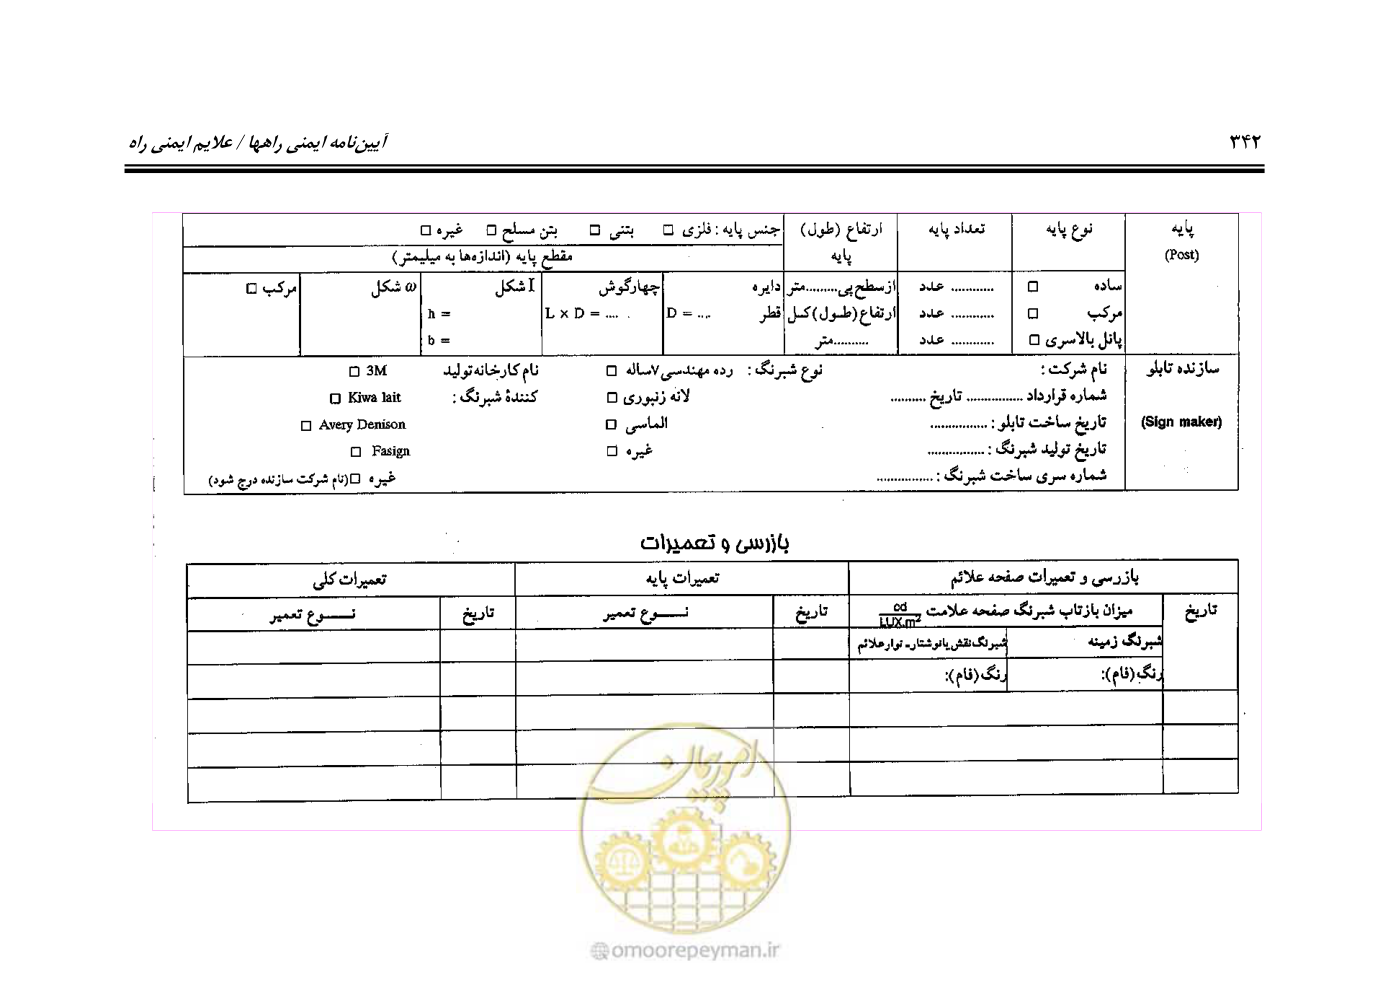 ۳۴۲
آیین‌نامه ایمنی راهها / علایم ایمنی راه
پایه
(Post)
نوع پایه
تعداد پایه
ارتفاع (طول)
پایه
جنس پایه : فلزی □ بتنی □ بتن مسلح □ غیره □
مقطع پایه (اندازه‌ها به میلیمتر)
ساده □
............ عدد
از سطح پی.........متر
دایره
چهارگوش
I شکل
ω شکل
مرکب □
مرکب □
............ عدد
ارتفاع (طول) کل
قطر D = ....
L × D = ....
h =
پانل بالاسری □
............ عدد
..........متر
b =
سازنده تابلو
(Sign maker)
نام شرکت :
شماره قرارداد ................ تاریخ ..........
تاریخ ساخت تابلو : ................
تاریخ تولید شبرنگ : ................
شماره سری ساخت شبرنگ : ................
نوع شبرنگ : رده مهندسی ۷ساله □
لانه زنبوری □
الماسی □
غیره □
نام کارخانه تولید
کنندهٔ شبرنگ :
□ 3M
□ Kiwa lait
□ Avery Denison
□ Fasign
غیره □(نام شرکت سازنده درج شود)
بازرسی و تعمیرات
بازرسی و تعمیرات صفحه علائم
تعمیرات پایه
تعمیرات کلی
تاریخ
میزان بازتاب شبرنگ صفحه علامت cd/LUX.m²
تاریخ
نـــــوع تعمیر
تاریخ
نـــــوع تعمیر
شبرنگ زمینه
شبرنگ نقش یا نوشتار ـ نوار علائم
رنگ (فام):
رنگ (فام):
امور پیمان
@omoorepeyman.ir